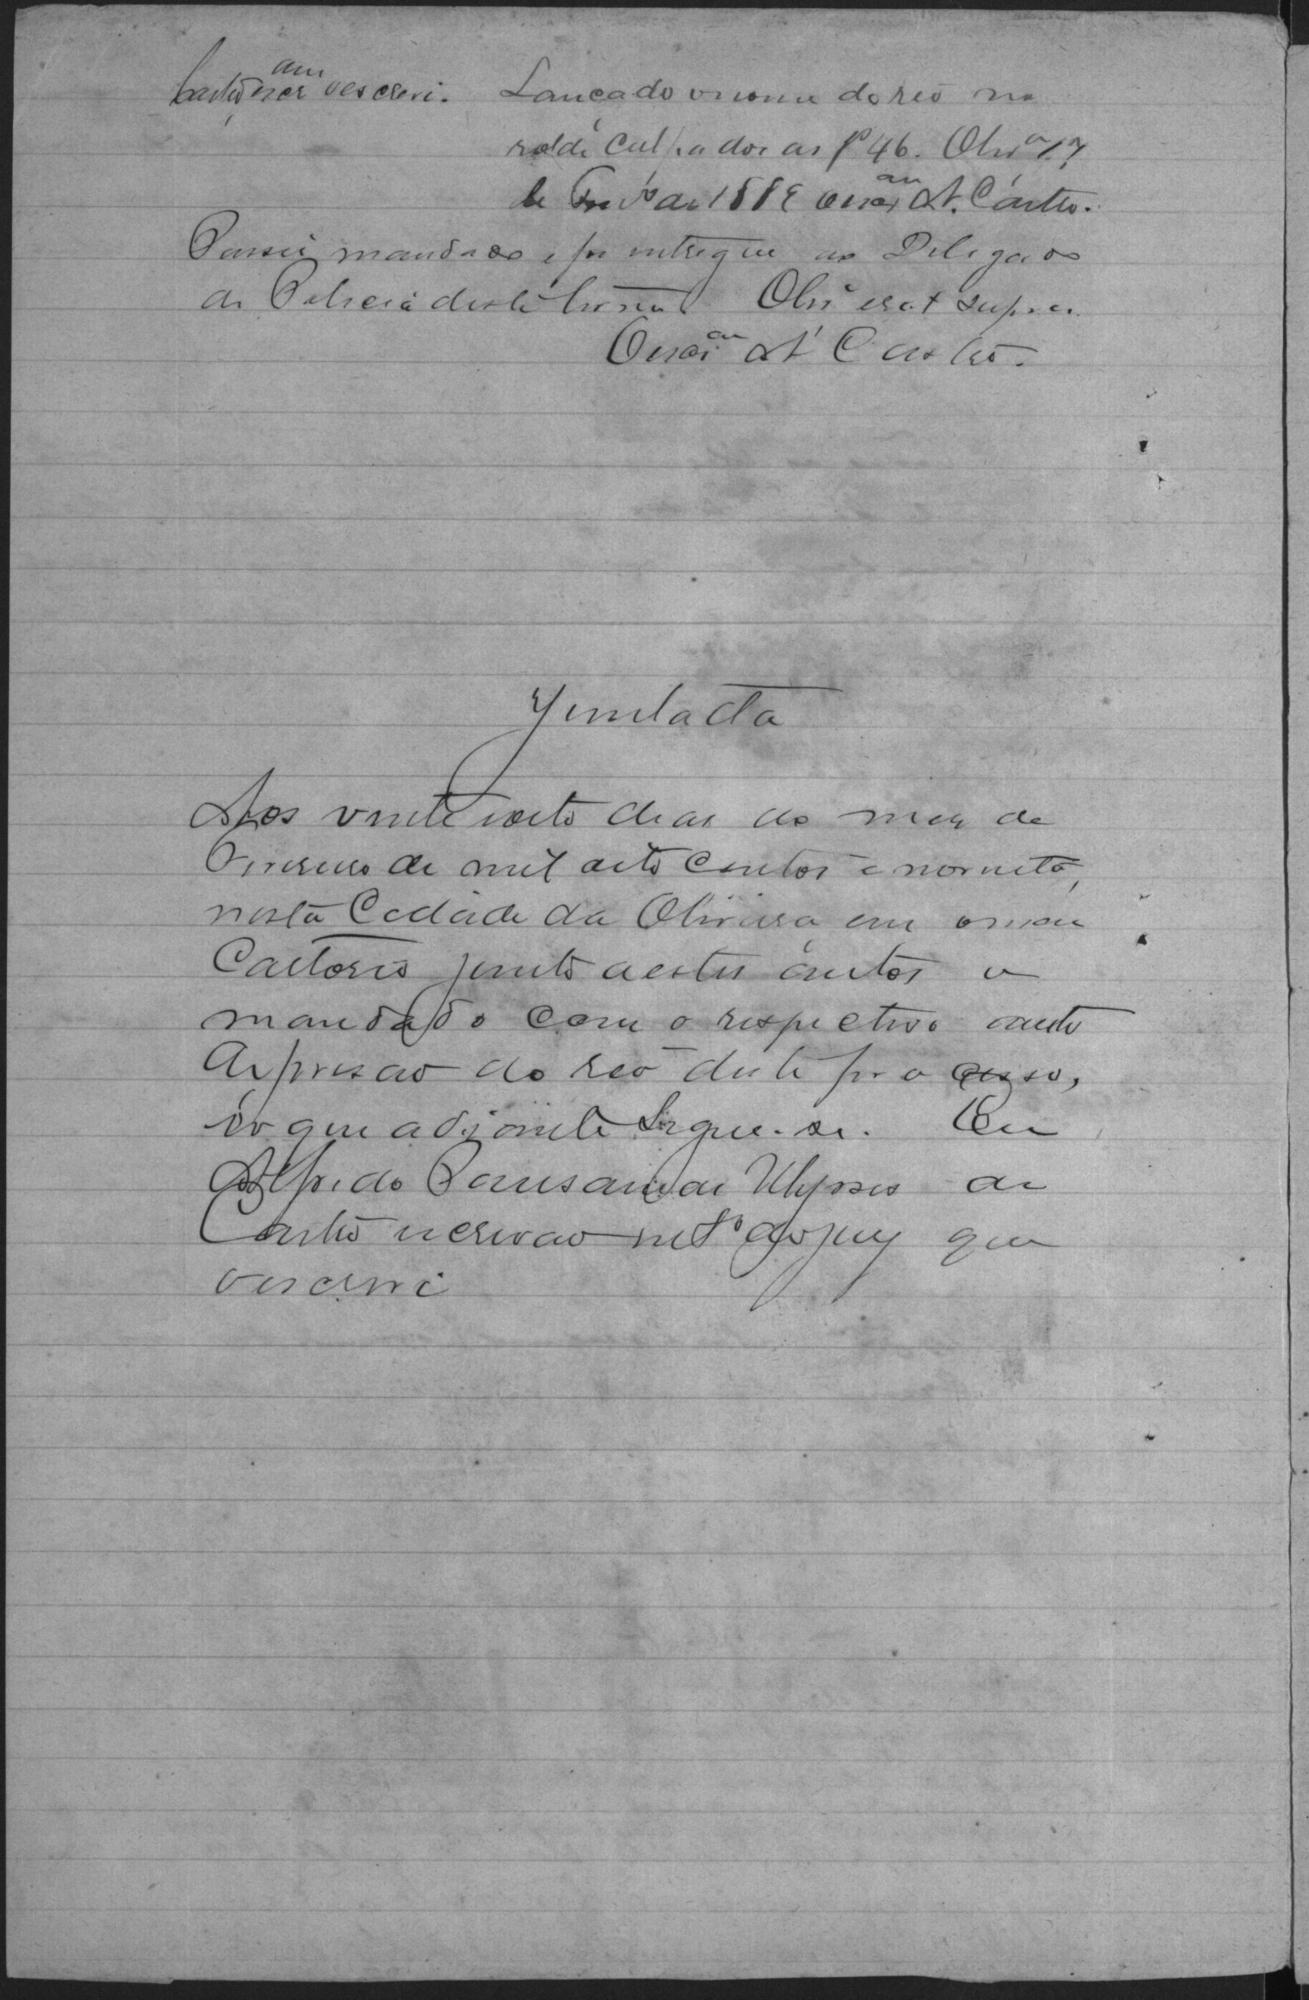 Castro escr.am o escrevi. Lançado o nome do reo no
rol de Culpados as f.º 46. Olivr.ª 17
de 1889 O escr.am A. Castro.
Passei mandado e foi entregue ao Delegado
de Policia deste termo Olivr.ª era ut supra.
O escr.am A. Castro.
Juntada
Aos vinte e oito dias do mez de
Janeiro de mil oito centos e noventa,
nesta Cidade da Oliveira em o meu
Cartorio junto a estes autos o
mandado com o respectivo auto
de prisão do reo deste processo,
o que adiante segue-se. Eu
Alfredo de Ulysses de
Castro escrivão do jury que
o escrevi